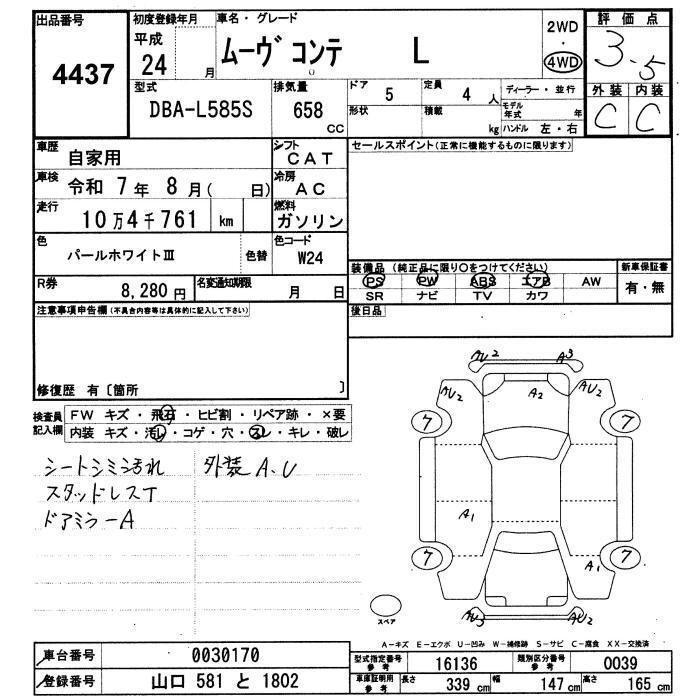 出品番号 初度登録年月 車名・グレード 2WD ・ 4WD 評価点
4437 平成 24 月 ムーヴ コンテ L 3.5
型式 排気量 ドア 5 定員 4 人 ディーラー・並行 外装 内装
DBA-L585S 658 CC 形状 積載 kg モデル年式 年 ハンドル 左・右 C C
車歴 自家用 シフト CAT セールスポイント(正常に機能するものに限ります)
車検 令和 7 年 8 月( 日) 冷房 AC
走行 10万4千761 km 燃料 ガソリン
色 パールホワイトⅢ 色替 色コード W24
装備品 (純正品に限り○をつけてください) 新車保証書
R券 8,280 円 名変通知期限 月 日 PS PW ABS エアB AW 有・無
SR ナビ TV カワ
注意事項申告欄(不具合内容等は具体的に記入して下さい) 後日品
修復歴 有〔箇所 〕
検査員記入欄 FW キズ・飛石・ヒビ割・リペア跡・×要
内装 キズ・汚レ・コゲ・穴・スレ・キレ・破レ
シートシミ汚れ 外装A.U
スタッドレスT
ドアミラーA
AU2 A3
AU2 A2 AU2
7 7
A1
7 A1 7
AU3 AU2
スペア
A−キズ E−エクボ U−凹み W−補修跡 S−サビ C−腐食 XX−交換済
車台番号 0030170 型式指定番号 参考 16136 類別区分番号 参考 0039
登録番号 山口 581 と 1802 車庫証明用 参考 長さ 339 cm 幅 147 cm 高さ 165 cm